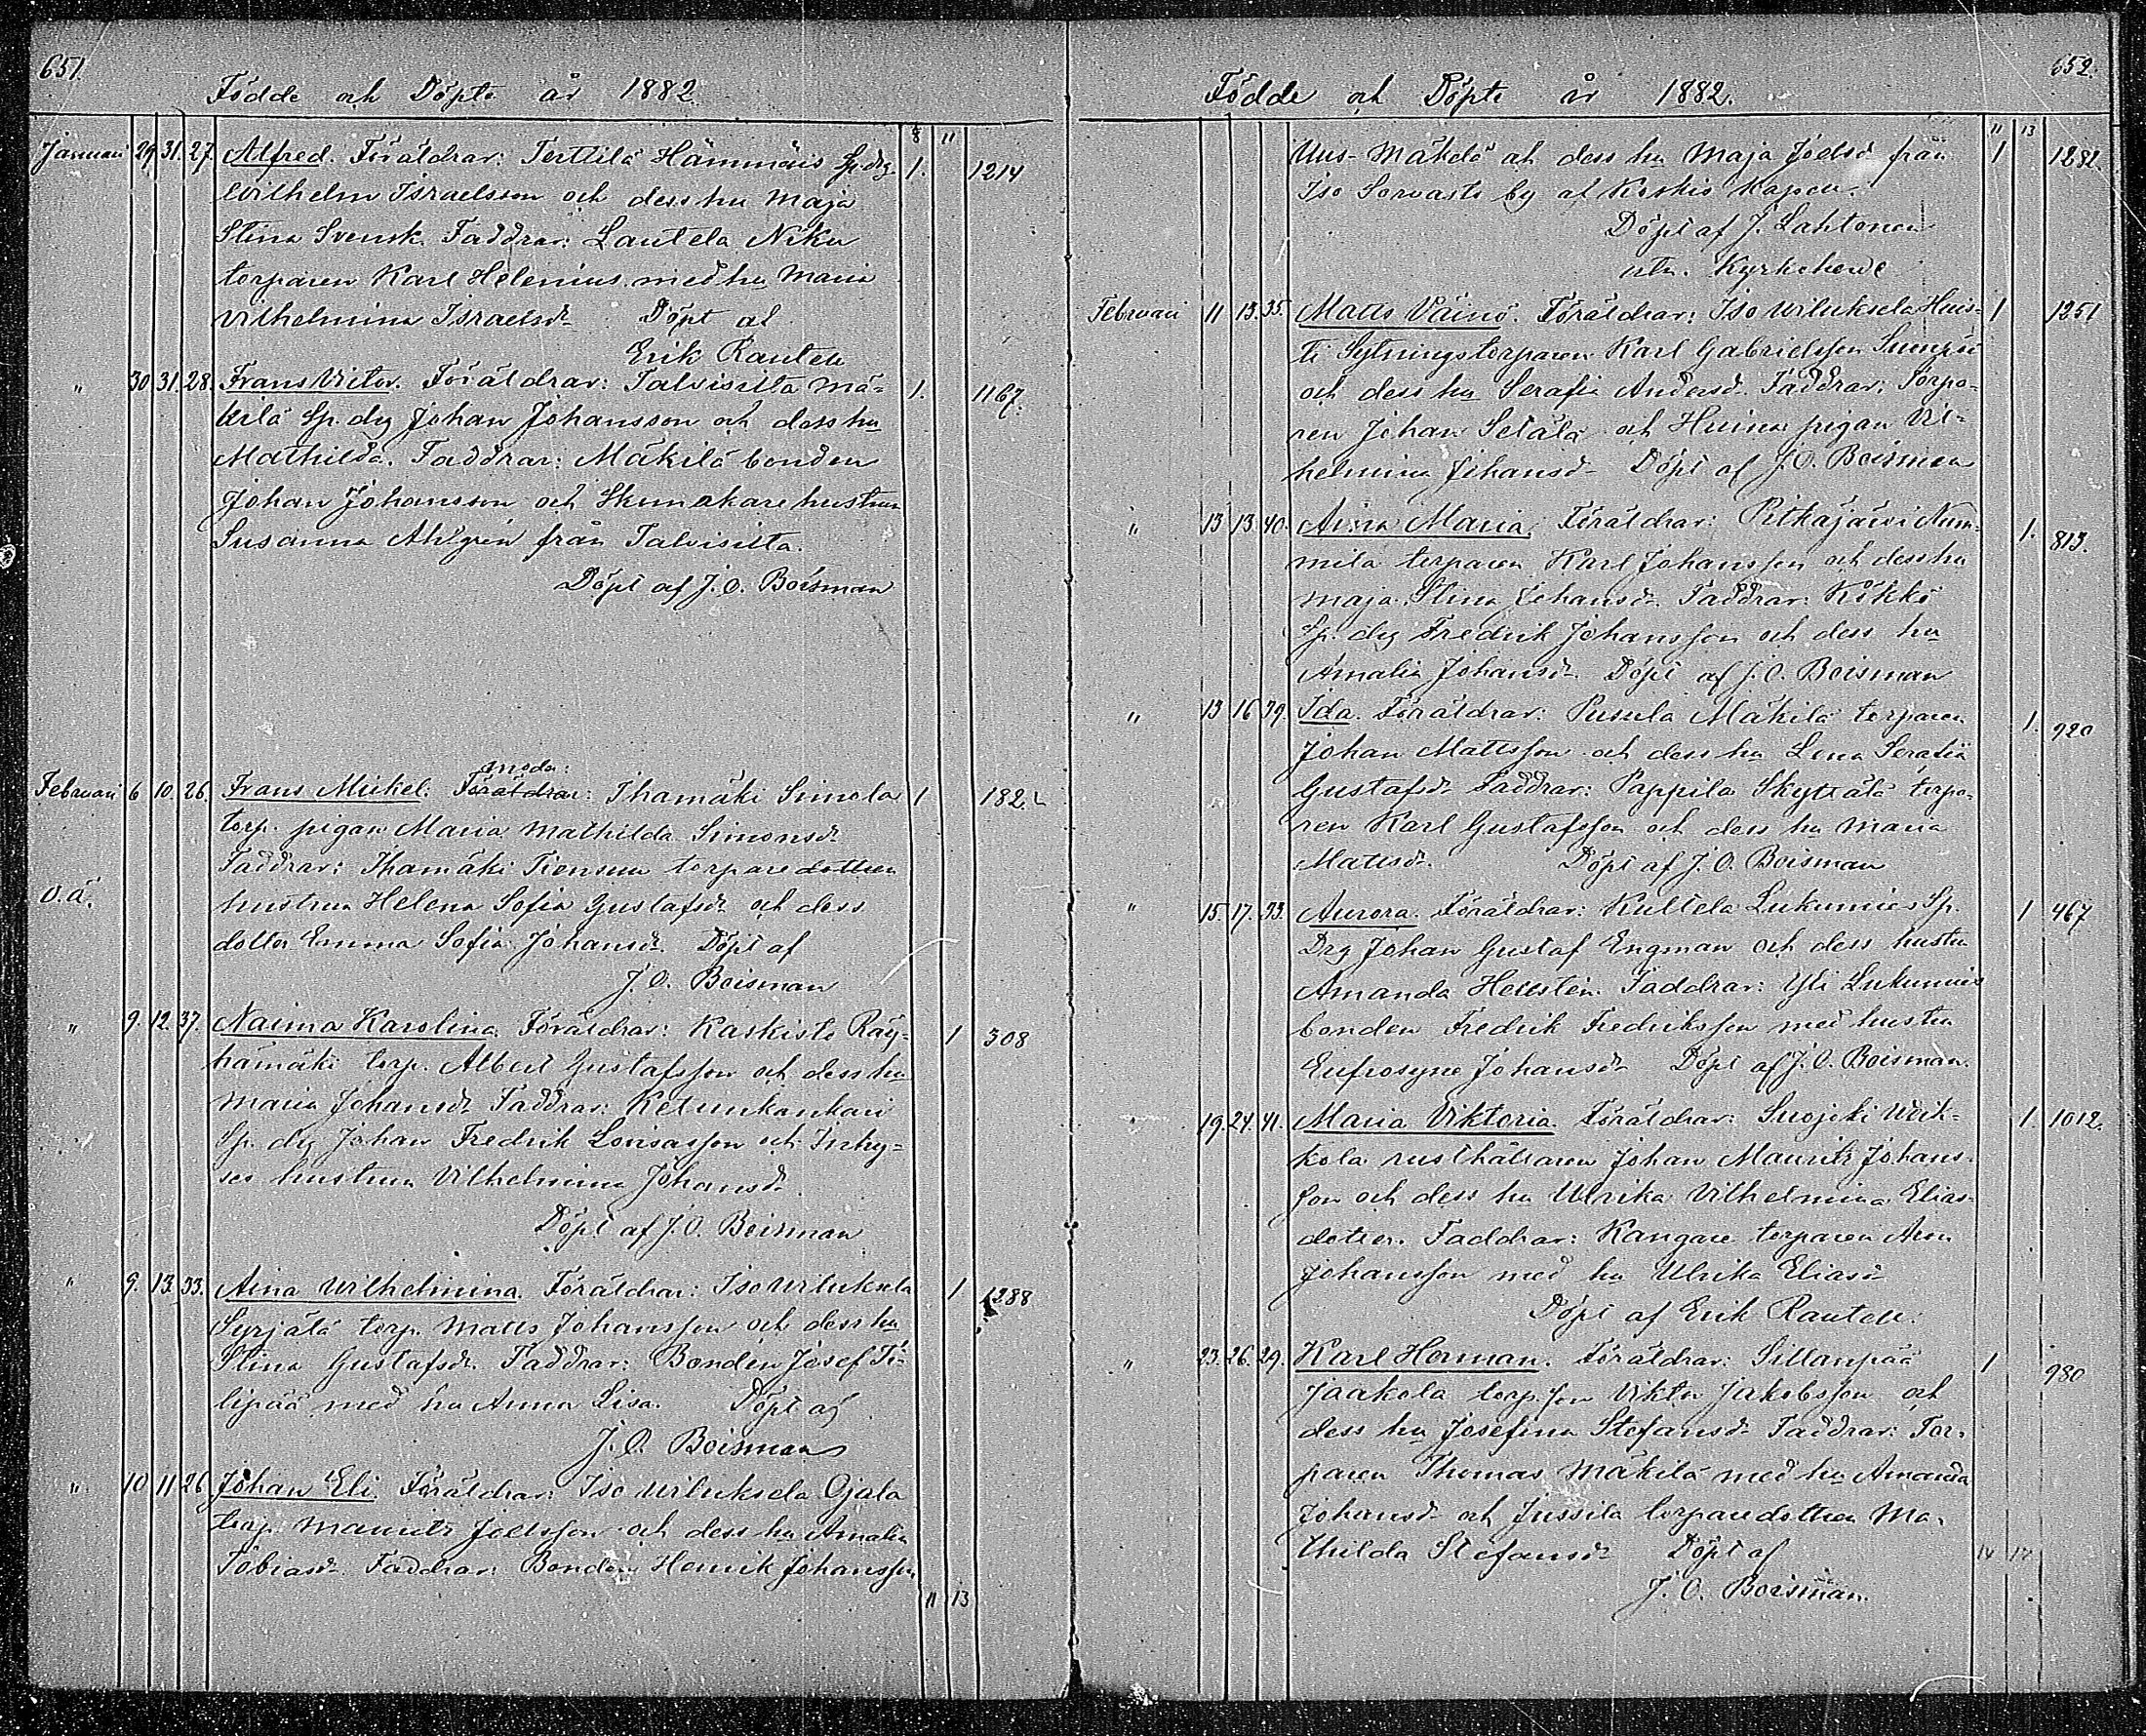 651.
Födde och Döpte år 1882
8 11
Januari 29. 31. 27. Alfred. Föräldrar: Terttilä Hämmäis Sp.drg. 1. 1214
Wilhelm Israelsson och dess hu Maja
Stina Svensk. Faddrar: Lautela Niku
torparen Karl Helenius med hu Maria
Vilhelmina Israelsdr Döpt af
Erik Rautell
" 30. 31. 28. Frans Victor. Föräldrar: Talvisilta Mä- 1. 1167.
kilä Sp. drg Johan Johansson och dess hu
Mathilda. Faddrar: Mäkilä bonden
Johan Johansson och Skomakare hustrun
Susanna Ahlgrén från Talvisilta.
Döpt af J. O. Boisman
moder:
Februari 6 10. 26. Frans Mickel. Föräldrar: Ihamäki Simola 1 182
torp. pigan Maria Mathilda Simonsdr
Faddrar: Ihamäki Tiensuu torpare dottren
o.ä. hustrun Helena Sofia Gustafsdr och dess
dotter Emma Sofia Johansdr. Döpt af
J. O. Boisman
" 9. 12. 37. Naima Karolina. Föräldrar: Karkisto Räy- 1 308
hämäki torp. Albert Gustafsson och dess hu
Maria Johansdr Faddrar: Ketunkankari
Sp. drg Johan Fredrik Lovisasson och Inhy-
ses hustrun Vilhelmina Johansdr
Döpt af J. O. Boisman
" 9. 13. 33. Aina Wilhelmina. Föräldrar: Iso Wiluksela 1 1288
Syrjälä torp. Matts Johansson och dess hu
Stina Gustafsdr. Faddrar: Bonden Josef Fi-
lipää med hu Anna Lisa. Döpt af
J. O. Boisman
" 10 11 26 Johan Eli. Föräldrar: Iso Wiluksela Ojala
torp. Mauritz Joelsson och dess hu Amalia
Tobiasdr. Faddrar: Bonden Henrik Johansson
11 13
652.
Födde och Döpte år 1882.
11 13
Uus-Mäkelä och dess hu Maja Joelsdr från 1 1282.
Iso Sorvasto by af Koskis Kapell.
Döpt af J. Lahtonen
utn. Kyrkoherde
Februari 11 13. 35. Matts Väinö. Föräldrar: Iso Wiluksela Huis- 1 1251
ti Sytningstorparen Karl Gabrielsson Sumpii
och dess hu Serafia Andersd. Faddrar: Torpa-
ren Johan Setälä och Huina pigan Vil-
helmina Johansdr Döpt af J. O. Boisman
" 13 13. 40. Aina Maria. Föräldrar: Pitkäjärvi Num- 1. 813.
mila torparen Karl Johansson och dess hu
Maja Stina Johansdr. Faddrar: Kökkö
Sp. drg Fredrik Johansson och dess hu
Amalia Johansdr. Döpt af J. O. Boisman
" 13 16 39. Ida. Föräldrar: Pusula Mäkilä torparen 1. 920
Johan Mattsson och dess hu Lena Serafia
Gustafsdr Faddrar: Pappila Skyttälä torpa-
ren Karl Gustafsson och dess hu Maria
Mattsdr. Döpt af J. O. Boisman
" 15. 17. 33. Aurora. Föräldrar: Kultela Lukumies Sp. 1 467
Drg Johan Gustaf Engman och dess hustru
Amanda Hellstén. Faddrar: Yli Lukumies
bonden Fredrik Fredriksson med hustru
Eufrosyne Johansdr Döpt af J. O. Boisman.
19. 24. 41. Maria Viktoria. Föräldrar: Suojoki Weik- 1. 1012.
kola rusthållaren Johan Mauritz Johans-
son och dess hu Ulrika Vilhelmina Elias-
dotter. Faddrar: Kangare torparen Aron
Johansson med hu Ulrika Eliasdr
Döpt af Erik Rautell.
" 23. 26. 29. Karl Herman. Föräldrar: Sillanpää 1 980
Jaakola torp. son Viktor Jakobsson och
dess hu Josefina Stefansdr Faddrar: Tor-
paren Thomas Mäkilä med hu Amanda
Johansdr och Jussila torparedottren Ma-
thilda Stefansdr Döpt af 14 17
J. O. Boisman.